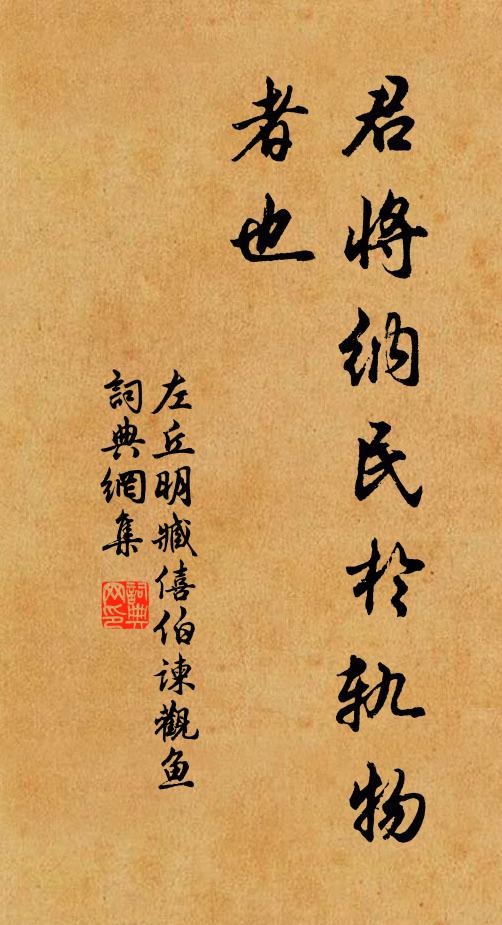 君將纳民於轨物
者也
左丘明臧僖伯諫觀鱼
詞典網集
詞典
网印